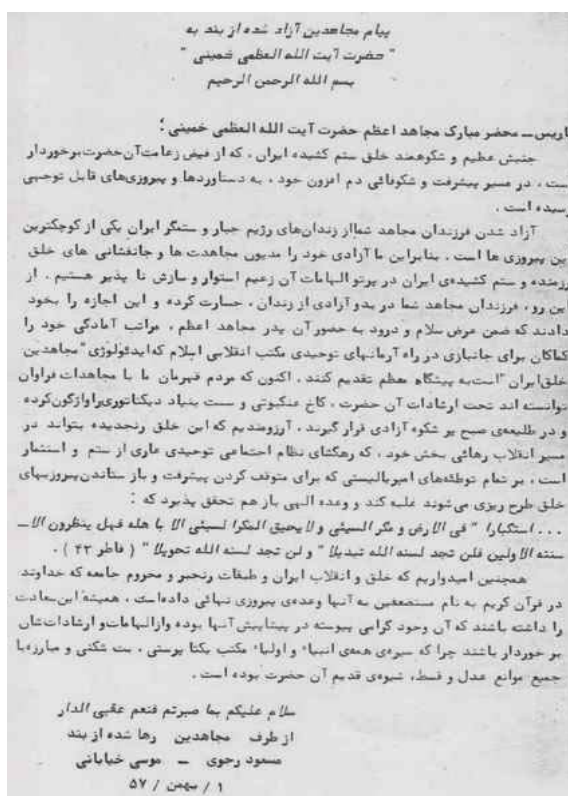 پیام مجاهدین آزاد شده از بند به
" حضرت آیت الله العظمی خمینی "
بسم الله الرحمن الرحیم
پاریس ــ محضر مبارک مجاهد اعظم حضرت آیت الله العظمی خمینی ؛
جنبش عظیم و شکوهمند خلق ستم کشیده ایران ، که از فیض زعامت آن حضرت برخوردار
است ، در مسیر پیشرفت و شکوفائی دم افزون خود ، به دستاوردها و پیروزی‌های قابل توجهی
رسیده است .
آزاد شدن فرزندان مجاهد شما از زندان‌های رژیم جبار و ستمگر ایران یکی از کوچکترین
این پیروزی ها است . بنابراین ما آزادی خود را مدیون مجاهدت ها و جانفشانی های خلق
رزمنده و ستم کشیده‌ی ایران در پرتو الهامات آن زعیم استوار و سازش نا پذیر هستیم . از
این رو ، فرزندان مجاهد شما در بدو آزادی از زندان ، جسارت کرده و این اجازه را بخود
دادند که ضمن عرض سلام و درود به حضور آن پدر مجاهد اعظم ، مراتب آمادگی خود را
کماکان برای جانبازی در راه آرمانهای توحیدی مکتب انقلابی اسلام که ایدئولوژی "مجاهدین
خلق ایران" است به پیشگاه معظم تقدیم کنند . اکنون که مردم قهرمان ما با مجاهدات فراوان
توانسته اند تحت ارشادات آن حضرت ، کاخ عنکبوتی و سست بنیاد دیکتاتوری را واژگون کرده
و در طلیعه‌ی صبح پر شکوه آزادی قرار گیرند ، آرزومندیم که این خلق رنجدیده بتواند در
مسیر انقلاب رهائی بخش خود ، که رهگشای نظام اجتماعی توحیدی عاری از ستم و استثمار
است ، بر تمام توطئه‌های امپریالیستی که برای متوقف کردن پیشرفت و باز ستاندن پیروزیهای
خلق طرح ریزی می‌شوند غلبه کند و وعده الهی باز هم تحقق پذیرد که :
. . . استکبارا " فی الارض و مکر السیئی و لا یحیق المکرا لسیئی الا با هله فهل ینظرون الا ــ
سنته الاولین فلن تجد لسنه الله تبدیلا " و لن تجد لسنه الله تحویلا " ( فاطر ۴۳ ) .
همچنین امیدواریم که خلق و انقلاب ایران و طبقات رنجبر و محروم جامعه که خداوند
در قرآن کریم به نام مستضعفین به آنها وعده‌ی پیروزی نهائی داده است ، همیشه این سعادت
را داشته باشند که آن وجود گرامی پیوسته در پیشاپیش آنها بوده و از الهامات و ارشاداتشان
بر خوردار باشند چرا که سیره‌ی همه‌ی انبیاء و اولیاء مکتب یکتا پرستی ، بت شکنی و مبارزه با
جمیع موانع عدل و قسط ، شیوه‌ی قدیم آن حضرت بوده است .
سلام علیکم بما صبرتم فنعم عقبی الدار
از طرف مجاهدین رها شده از بند
مسعود رجوی ــ موسی خیابانی
۱ / بهمن / ۵۷